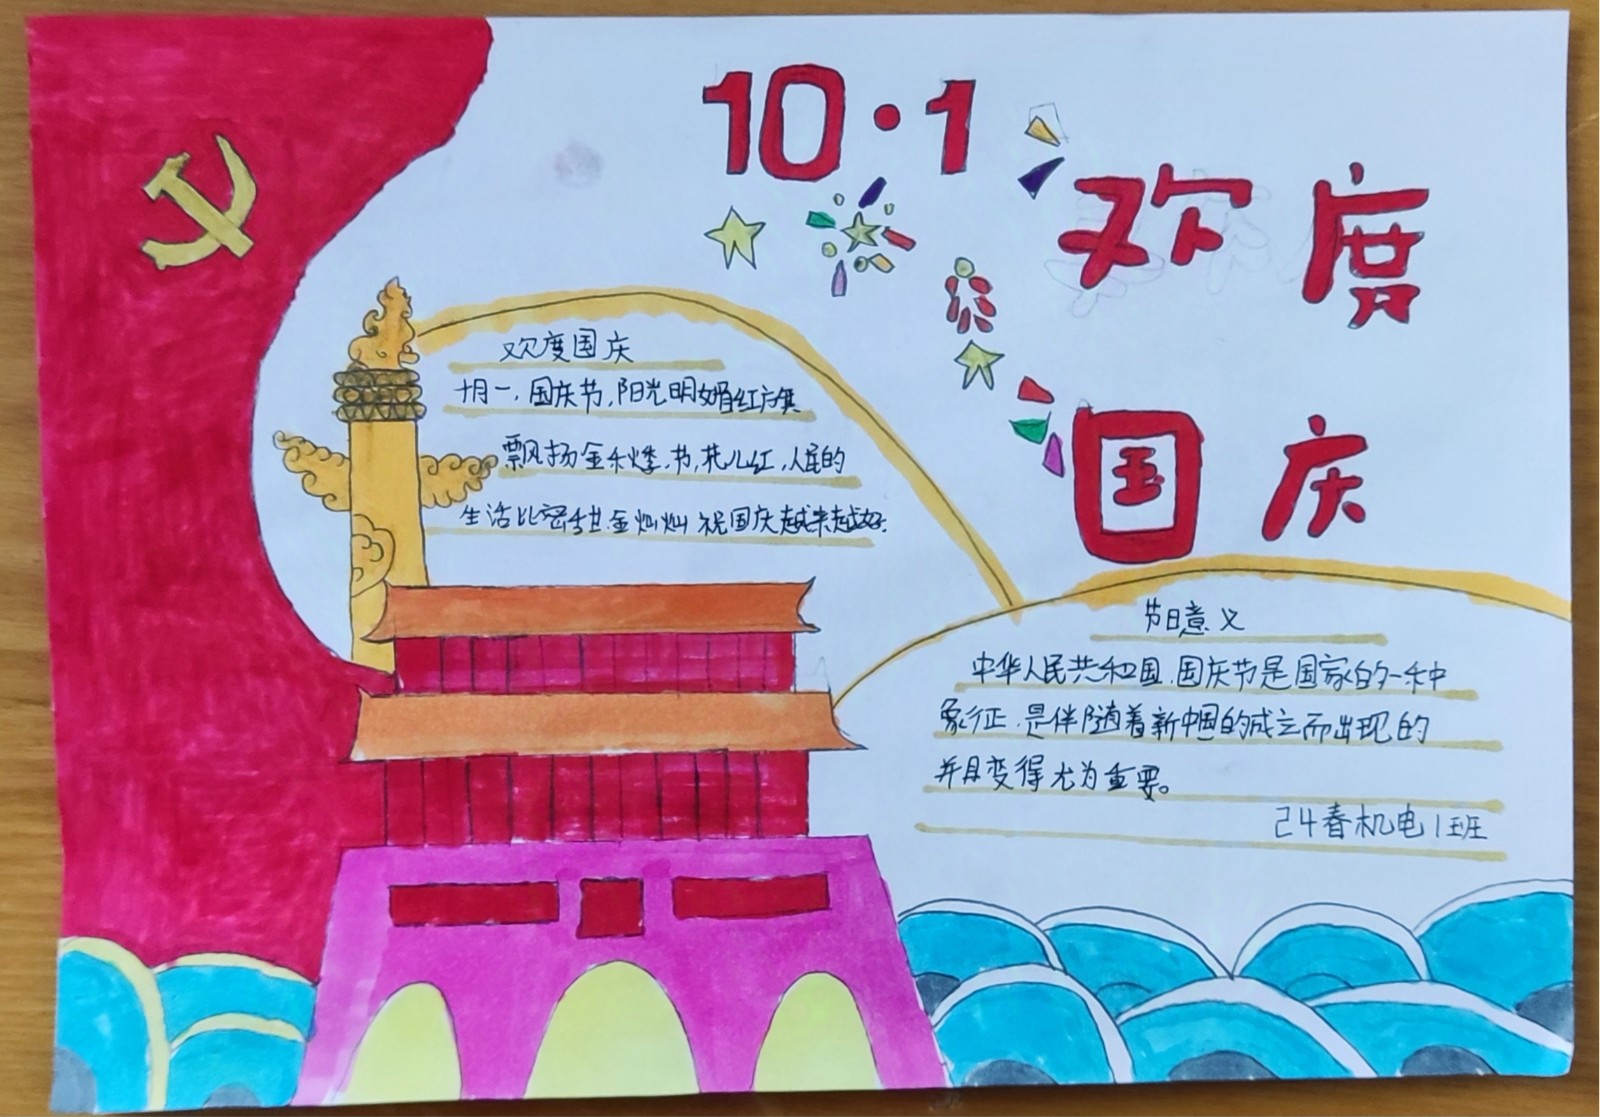 10·1
欢度
国庆
欢度国庆
十月一,国庆节,阳光明媚红旗
飘扬金秋季.节,花儿红,人民的
生活比密甜.金灿灿祝国庆越来越好.
节日意义
中华人民共和国.国庆节是国家的一种
象征.是伴随着新中国的成立而出现的
并且变得尤为重要。
24春机电1班